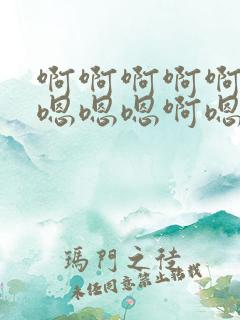 啊啊啊啊啊
嗯嗯嗯啊嗯
瑪門之徒
未经同意禁止轉找